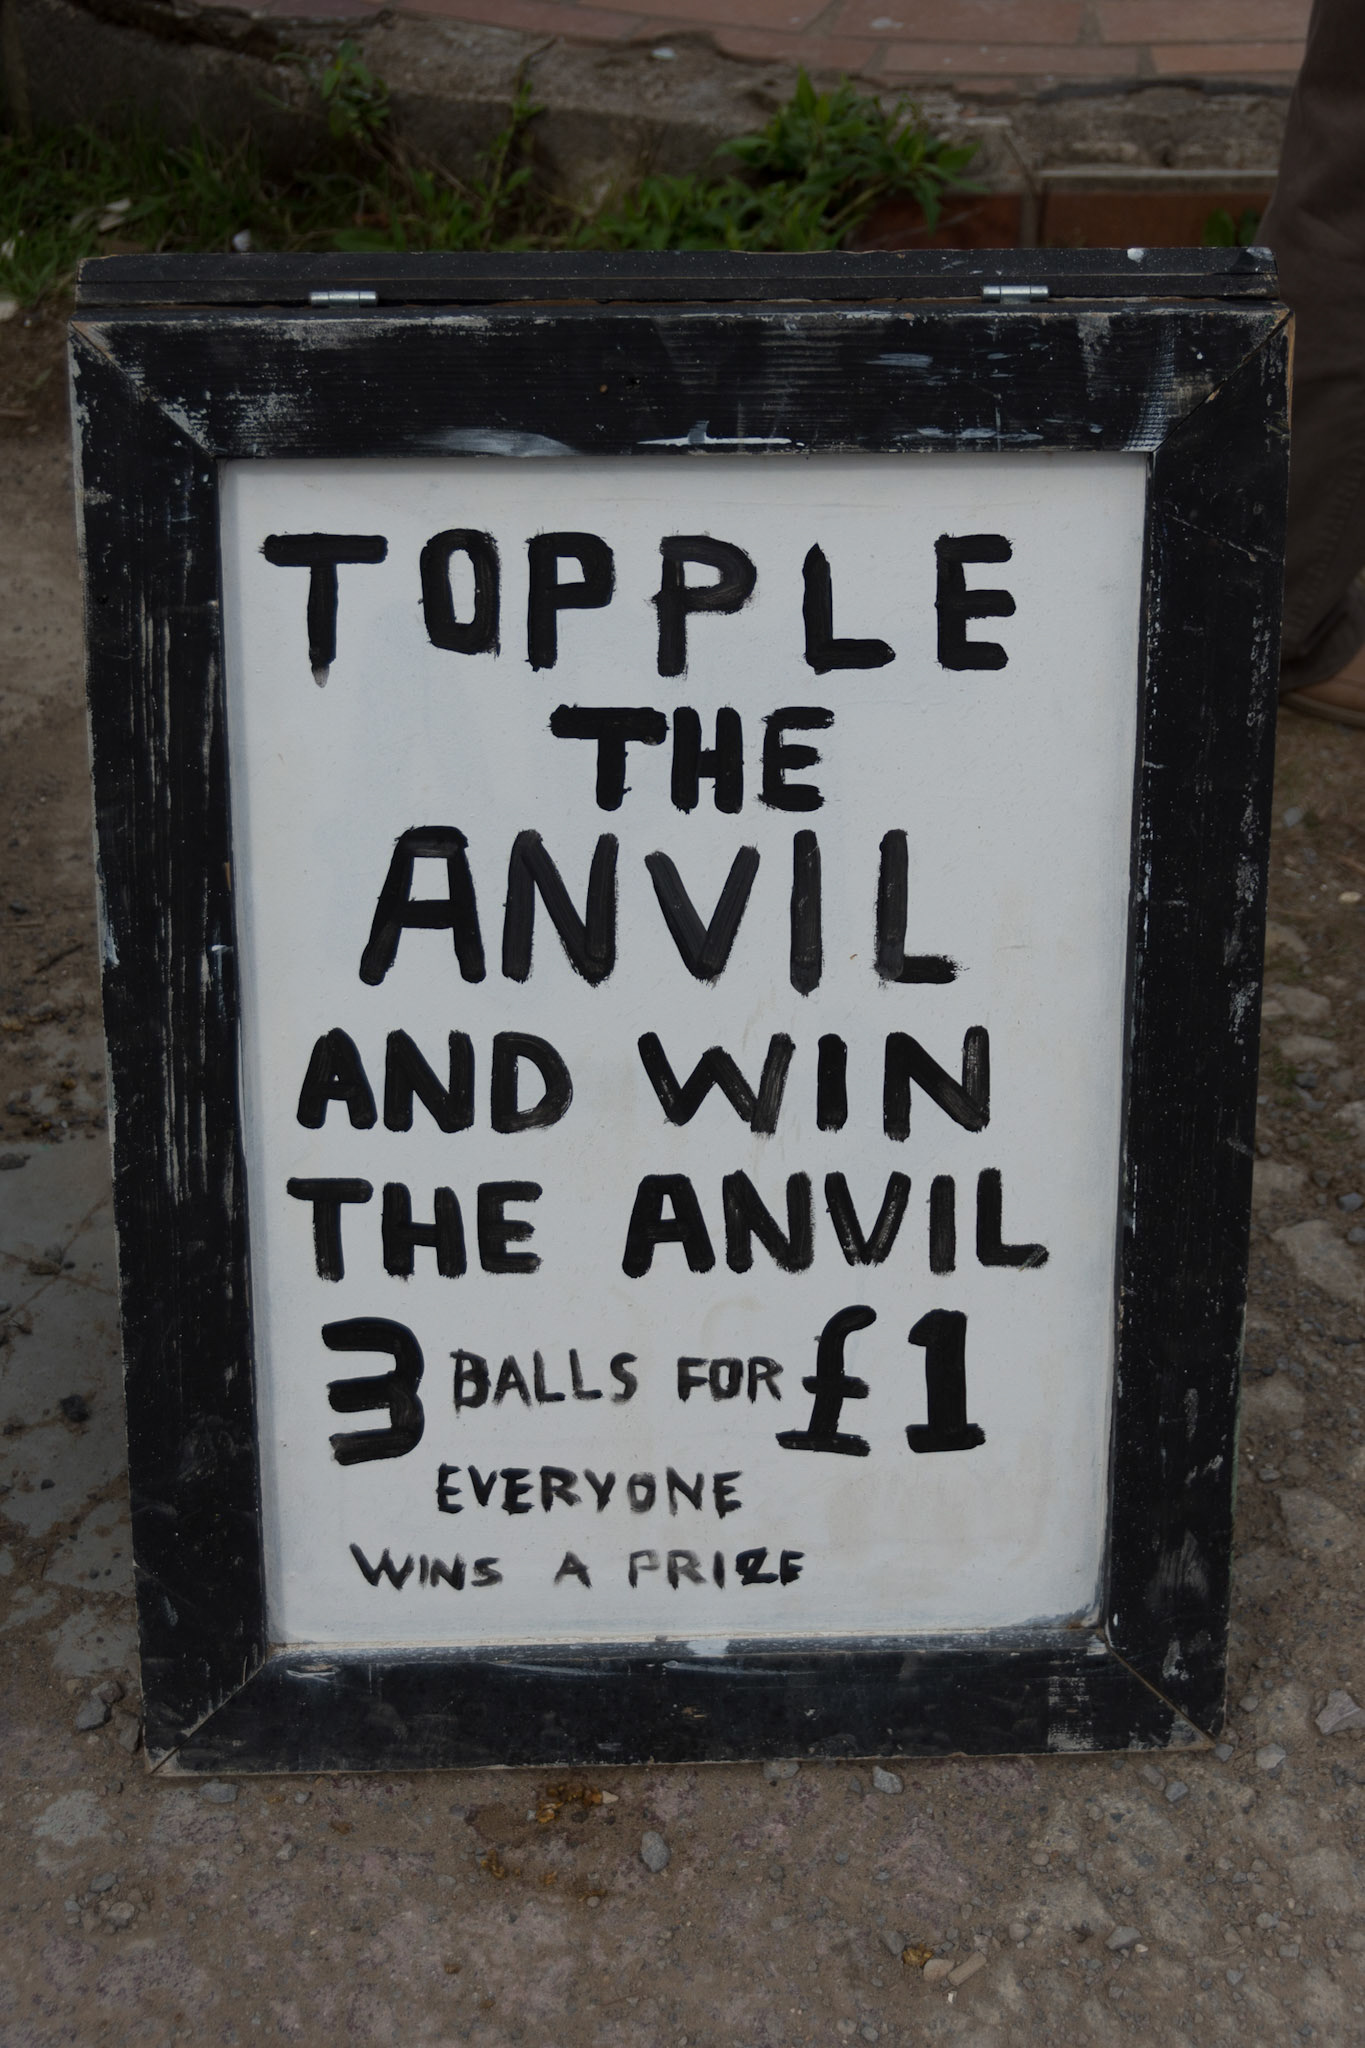 TOPPLE
THE
ANVIL
AND WIN
THE ANVIL
3 BALLS FOR £1
EVERYONE
WINS A PRIZE